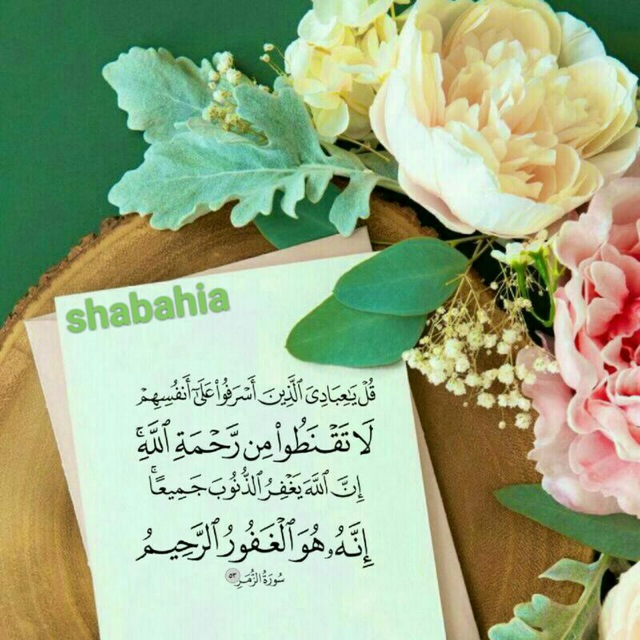 shabahia
قُلْ يَٰعِبَادِىَ ٱلَّذِينَ أَسْرَفُوا۟ عَلَىٰٓ أَنفُسِهِمْ
لَا تَقْنَطُوا۟ مِن رَّحْمَةِ ٱللَّهِ ۚ
إِنَّ ٱللَّهَ يَغْفِرُ ٱلذُّنُوبَ جَمِيعًا ۚ
إِنَّهُۥ هُوَ ٱلْغَفُورُ ٱلرَّحِيمُ
سُورَةُ الزُّمَرِ ٥٣